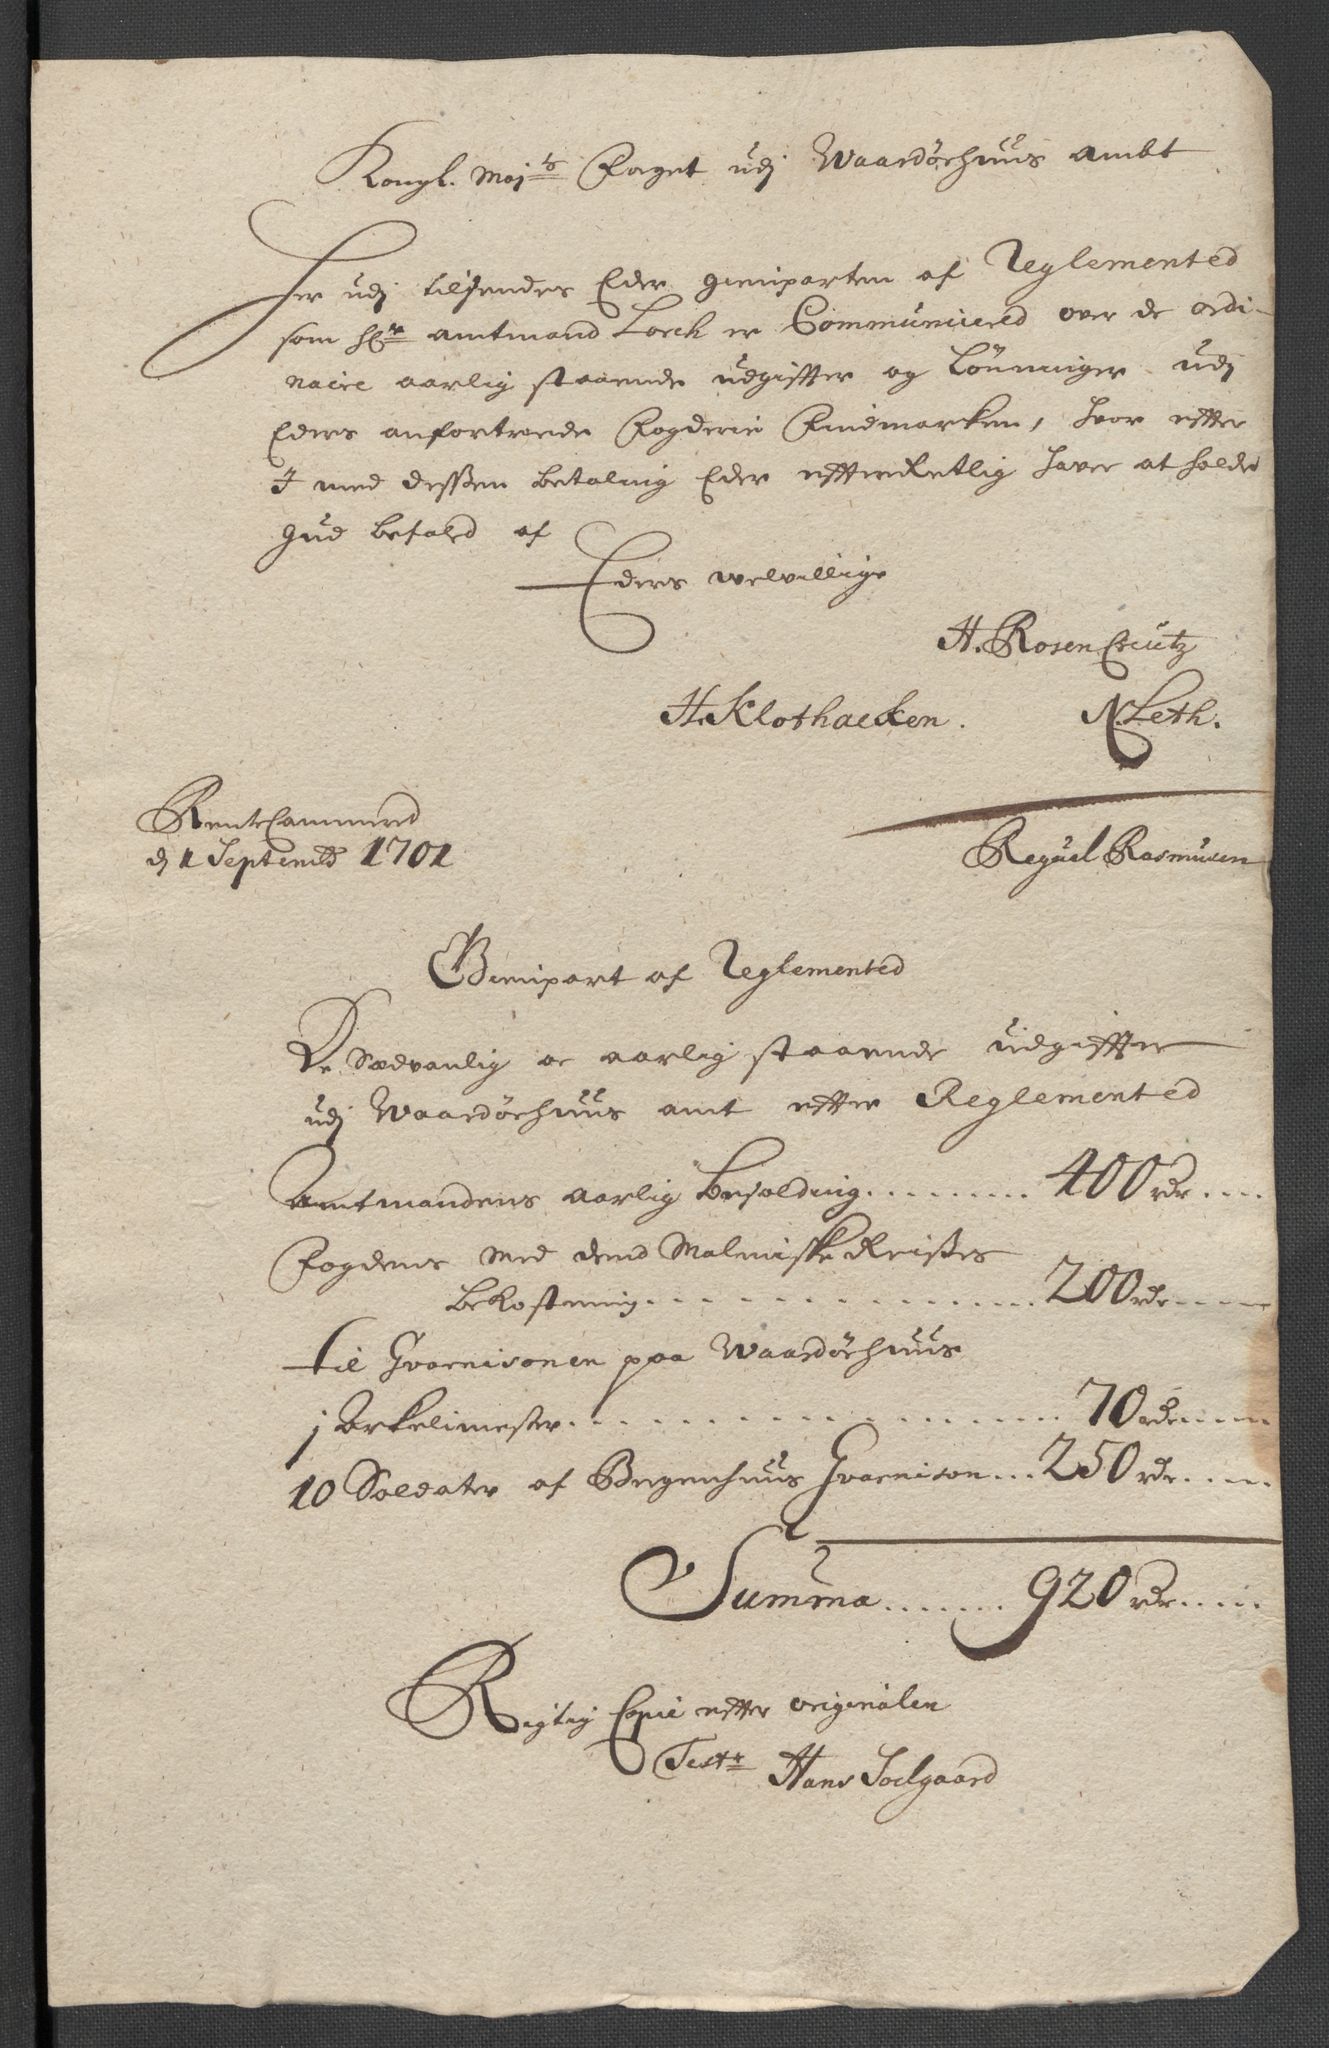 Kongl. Maj:ts Foget udj Waardøehuus ambt
Her udj tilsendes Eder gienparten af Reglemented
som Hr: amtmand Lorck er Communicered over de ordi-
naire aarlig staaende udgiffter og Lønninger udj
Eders anfortroede Fogderie Findmarken, hvor effter
I med dessen betaling Eder effterRetlig haver at holde
Gud befaled af
Eders velvillige
H. RosenCreutz
H. Klothacken. N. Leth.
RenteCammered
dj 1 Septembr 1701
Reguel Rasmusen
Gienpart af Reglemented
De Sædvanlig oc aarlig staaende udgiffter
udj Waardøehuus amt effter Reglemented
Amtmandens aarlig besolding......... 400 rdr....
Fogdens med dend Malmiske Reises
beKostning................. 200 rdr.....
til Gvarnisonen paa Waardøehuus
j Arkelimester................... 70 rdr.....
10 Soldater af Bergenhuus Gvarnison... 250 rdr.....
Summa....... 920 rdr.....
Rigtig Copie effter originalen
Test: Hans Soelgaard